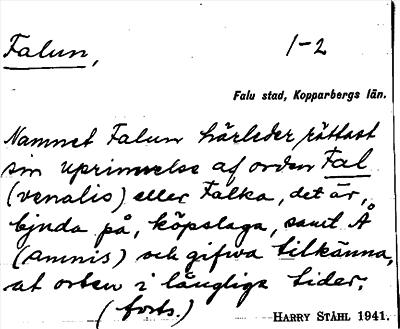 Falun, 1-2
Falu stad, Kopparbergs län.
Namnet Falun härleder rättast
sin uprinnelse af orden Fal
(venalis) eller Falka, det är,
bjuda på, köpslaga, samt Å
(amnis) och gifwa tilkänna,
at orten i långliga tider,
(forts.)
HARRY STÅHL 1941.